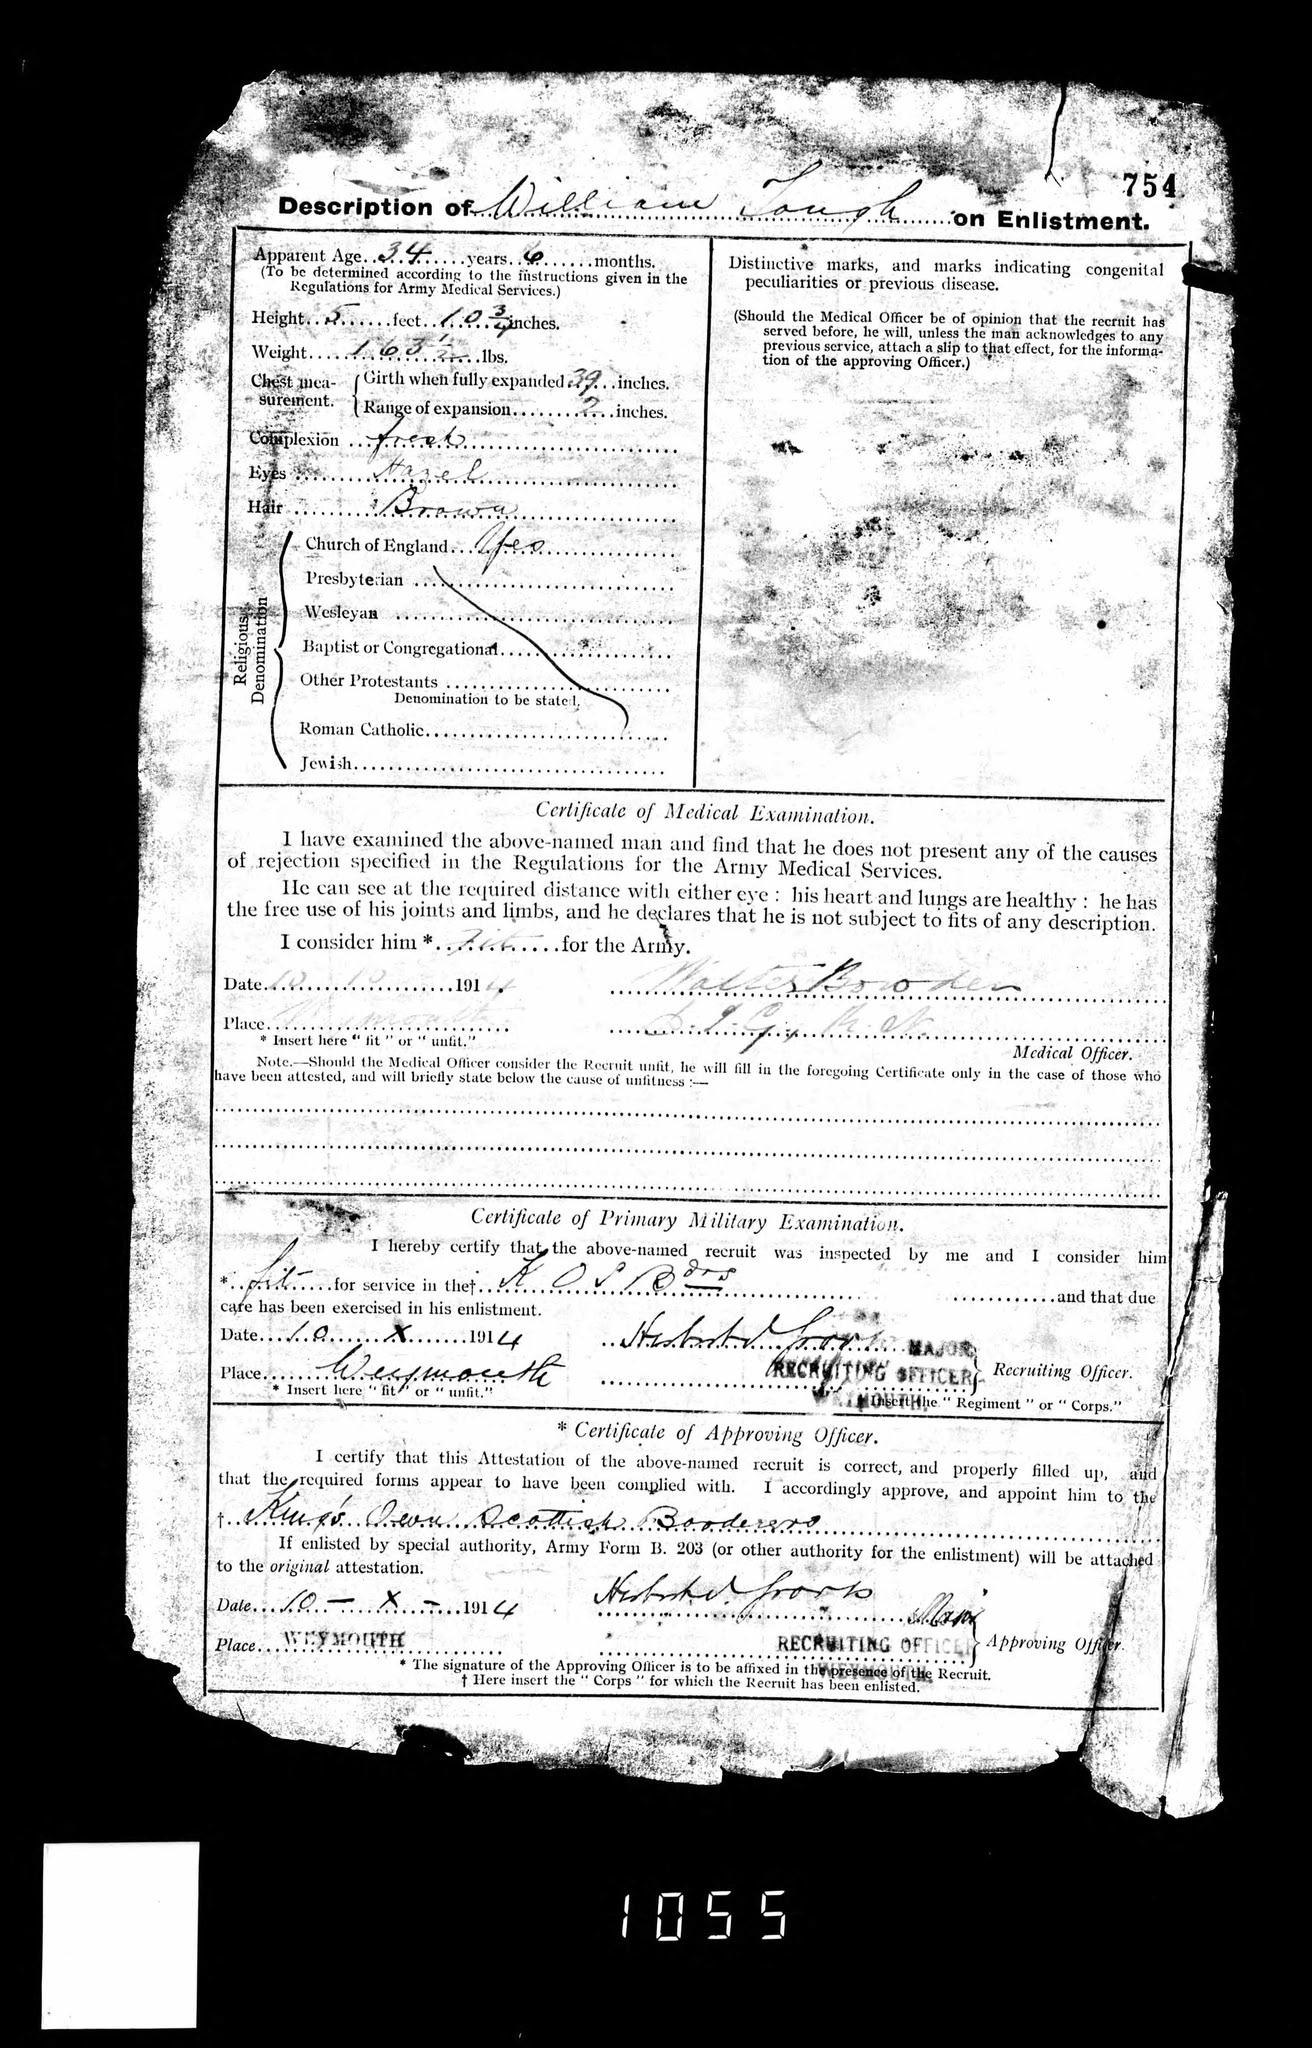 754
Description of William Tough on Enlistment.
Apparent Age 34 years 6 months.
(To be determined according to the instructions given in the
Regulations for Army Medical Services.)
Height 5 feet 10 3/4 inches.
Weight 163 1/2 lbs.
Chest mea-
surement.
Girth when fully expanded 39 inches.
Range of expansion 2 inches.
Complexion fresh
Eyes Hazel
Hair Brown
Religious
Denomination
Church of England Yes
Presbyterian
Wesleyan
Baptist or Congregational
Other Protestants
Denomination to be stated.
Roman Catholic
Jewish
Distinctive marks, and marks indicating congenital
peculiarities or previous disease.
(Should the Medical Officer be of opinion that the recruit has
served before, he will, unless the man acknowledges to any
previous service, attach a slip to that effect, for the informa-
tion of the approving Officer.)
Certificate of Medical Examination.
I have examined the above-named man and find that he does not present any of the causes
of rejection specified in the Regulations for the Army Medical Services.
He can see at the required distance with either eye : his heart and lungs are healthy : he has
the free use of his joints and limbs, and he declares that he is not subject to fits of any description.
I consider him * fit for the Army.
Date 10 10 1914 Walter Bowden
Place Weymouth
* Insert here " fit " or " unfit."
Medical Officer.
Note.—Should the Medical Officer consider the Recruit unfit, he will fill in the foregoing Certificate only in the case of those who
have been attested, and will briefly state below the cause of unfitness :—
Certificate of Primary Military Examination.
I hereby certify that the above-named recruit was inspected by me and I consider him
* fit for service in the† K O S Bdrs and that due
care has been exercised in his enlistment.
Date 10 X 1914 MAJOR
Place Weymouth RECRUITING OFFICER Recruiting Officer.
WEYMOUTH.
* Insert here " fit " or " unfit."
† Insert the " Regiment " or " Corps."
* Certificate of Approving Officer.
I certify that this Attestation of the above-named recruit is correct, and properly filled up, and
that the required forms appear to have been complied with. I accordingly approve, and appoint him to the
† King's Own Scottish Borderers
If enlisted by special authority, Army Form B. 203 (or other authority for the enlistment) will be attached
to the original attestation.
Date 10 - X - 1914 Major
Place WEYMOUTH RECRUITING OFFICER Approving Officer.
WEYMOUTH
* The signature of the Approving Officer is to be affixed in the presence of the Recruit.
† Here insert the " Corps " for which the Recruit has been enlisted.
1055